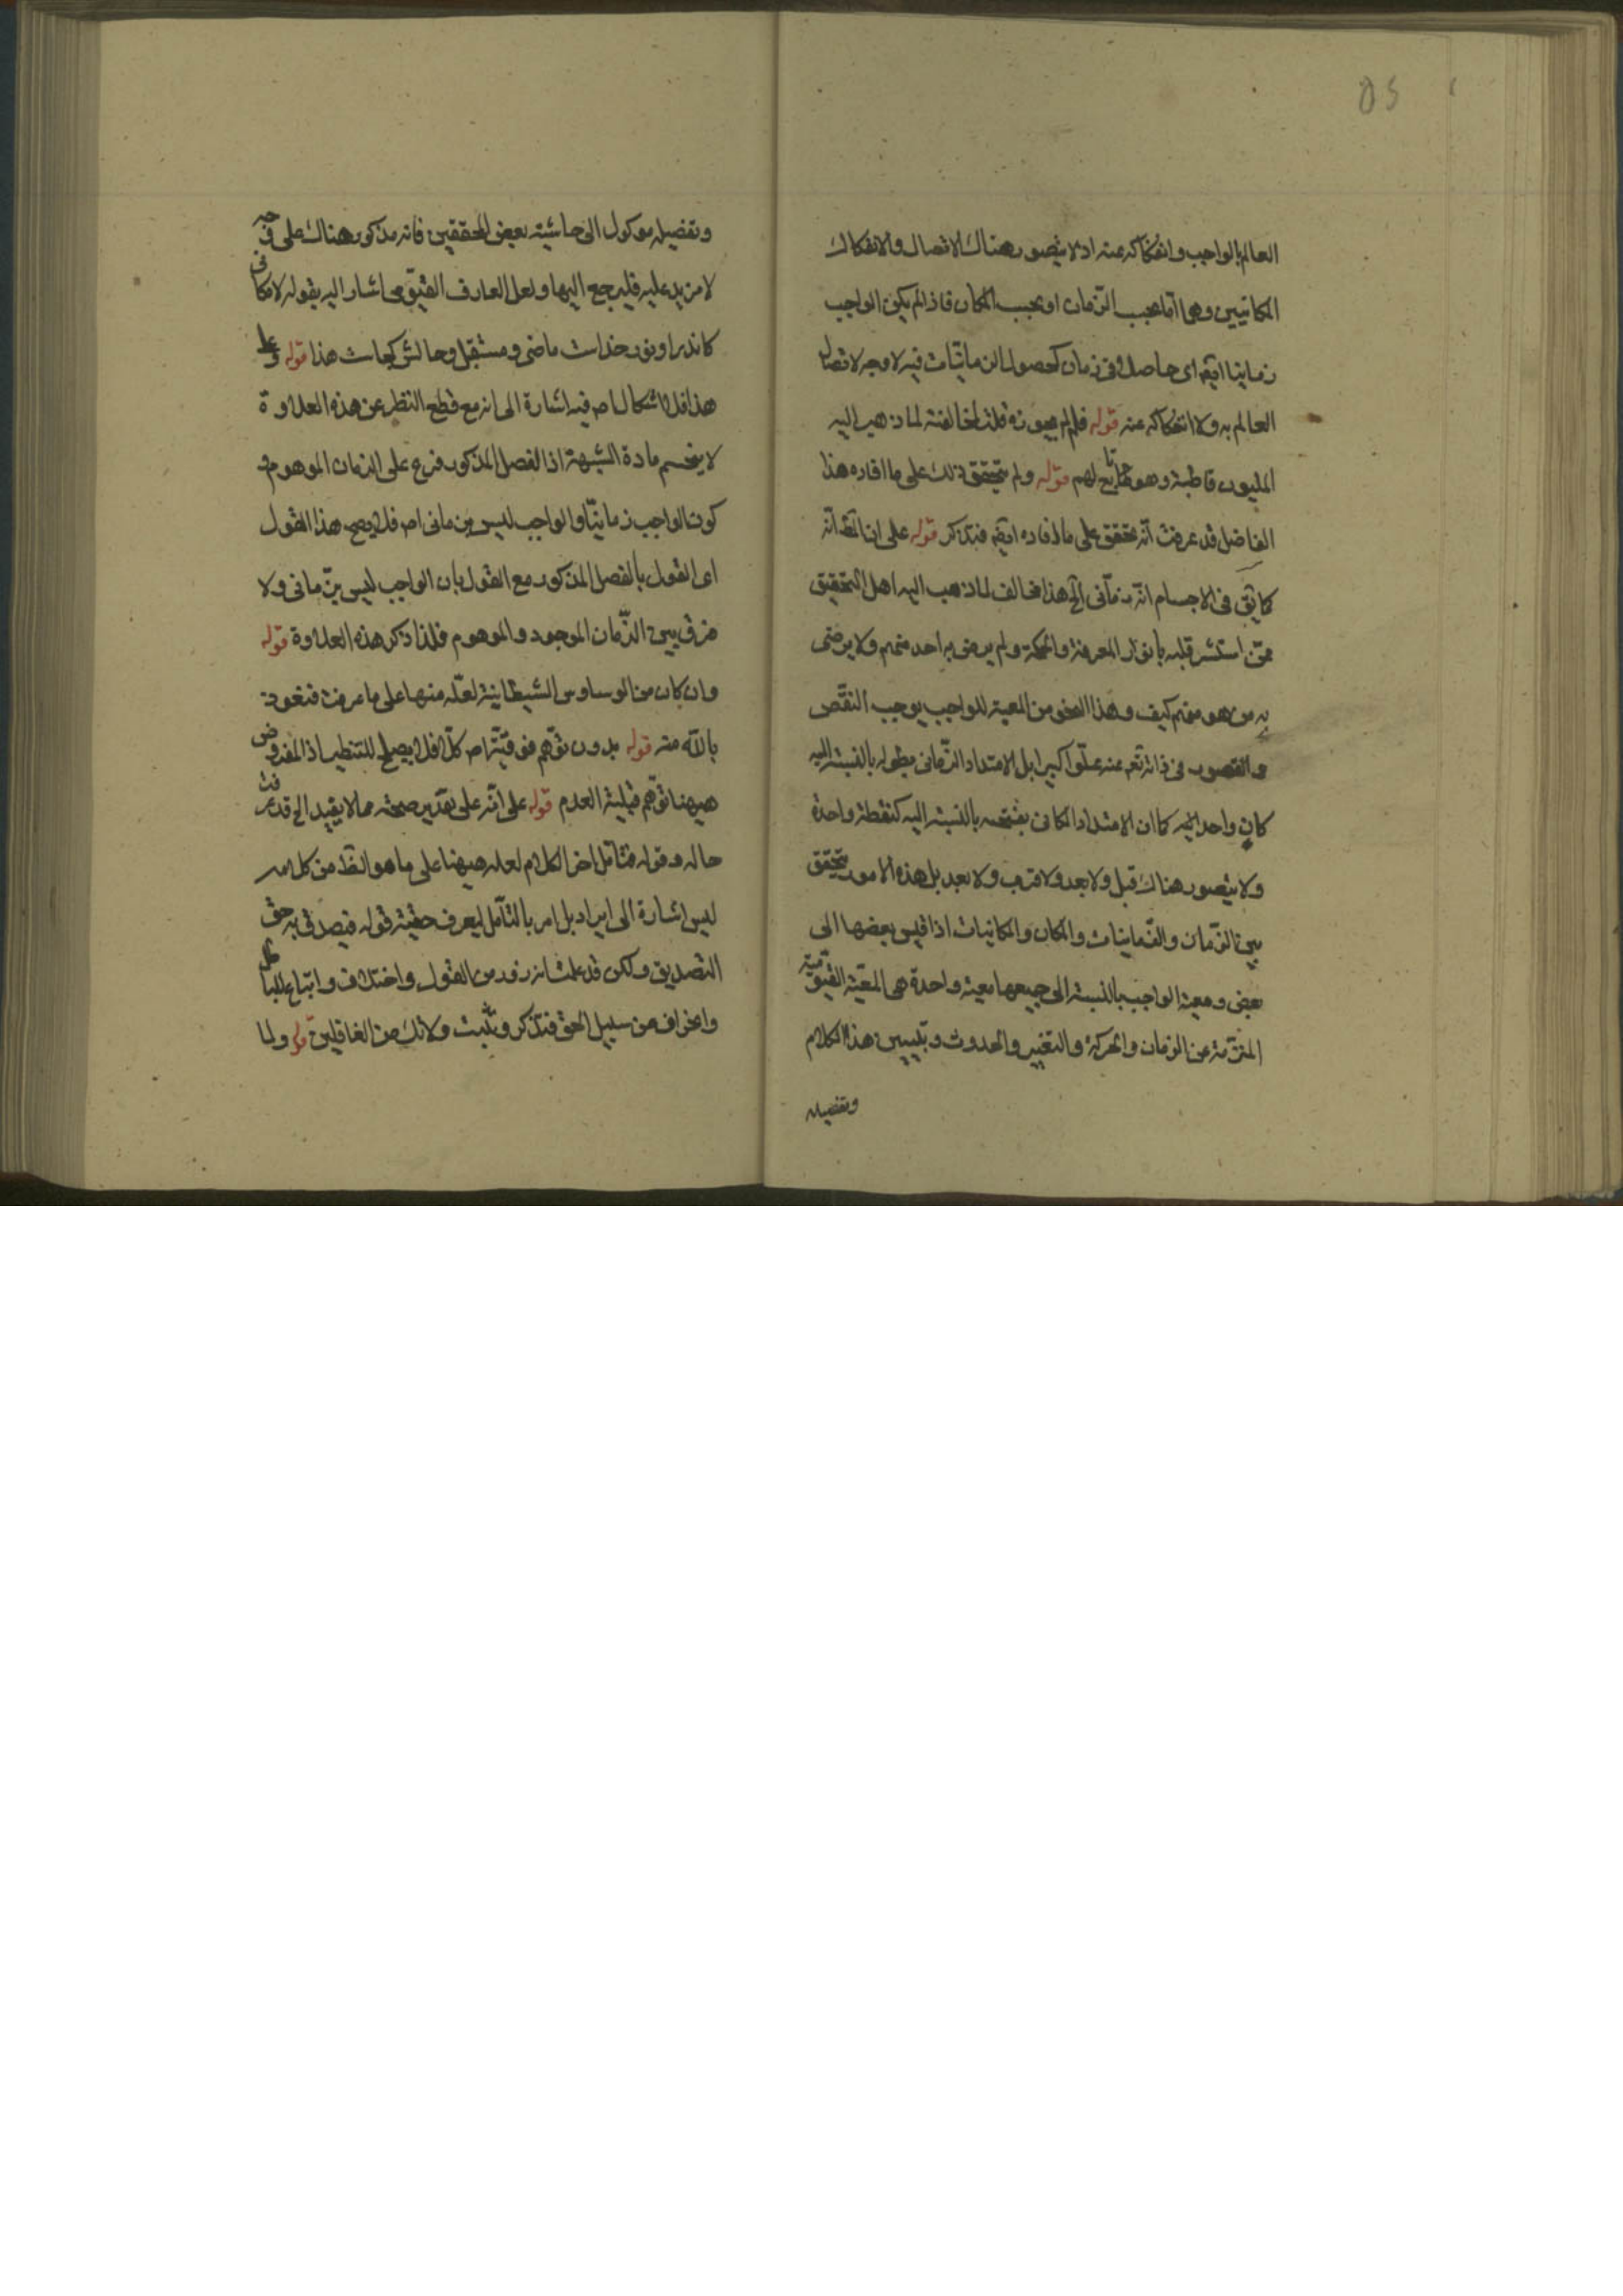 العالم بالواجب وانفكاكه عنه اذ لا يتصور هناك الاتصال والانفكاك
المكانيين وهى اما بحسب الزمان او بحسب المكان فاذا لم يكن الواجب
زمانيا ايضا اى حاصلا فى زمان كحصول الزمانيات فيه لا وجه لاتصال
العالم به ولا انفكاكه عنه قوله فلم لم يجوزه قلت لمخالفته لما ذهب اليه
المليون قاطبة وهو تابع لهم قوله ولم يتحقق ذلك على ما افاده هذا
الفاضل قد عرفت انه متحقق على ما افاده ايضا فتذكر قوله على ان الظ انه
كما يق فى الاجسام انه زمانى الخ هذا مخالف لما ذهب اليه اهل التحقيق
ممن استشرق قلبه بانوار المعرفة والحكمة ولم يرض به احد منهم ولا يرضى
به من هو منهم كيف وهذا النحو من المعية للواجب يوجب النقص
والقصور فى ذاته تعالى عنه علوا كبيرا بل الامتداد الزمانى بطوله بالنسبة اليه
كان واحد كما ان الامتداد المكانى بالنسبة اليه كنقطة واحدة
ولا يتصور هناك قبل ولا بعد ولا قرب ولا بعد بل هذه الامور يتحقق
بين الزمان والزمانيات والمكان والمكانيات اذا قيس بعضها الى
بعض ومعية الواجب بالنسبة الى جميعها معية واحدة هى المعية القيومية
المنزهة عن الزمان والحركة والتغير والحدوث وتبيين هذا الكلام
وتفصيله
وتفصيله موكول الى حاشية بعض المحققين فانه مذكور هناك على وجه
لا مزيد عليه فليرجع اليها ولعل العارف القيومى اشار اليه بقوله لامكانى
كاندرو نور خداست ماضى و مستقبل و حالش كجاست هذا قوله وعلى
هذا فلا اشكال اه فيه اشارة الى انه مع قطع النظر عن هذه العلاوة
لا ينحسم مادة الشبهة اذ الفصل المذكور فرع على الزمان الموهوم و
كون الواجب زمانيا والواجب ليس بزمانى اه فلا يصح هذا القول
اى القول بالفصل المذكور مع القول بان الواجب ليس بزمانى ولا
فرق بين الزمان الموجود والموهوم فلذا ذكر هذه العلاوة قوله
وان كان من الوساوس الشيطانية لعله منها على ما عرفت فنعوذ
بالله منه قوله بدون توهم فوقية اه كلا فلا يصلح للتنظير اذ المفروض
هيهنا توهم قبلية العدم قوله على انه على تقدير صحته مما لا يفيد الخ قد عرفت
حاله وقوله فتامل اخر الكلام لعله هيهنا على ما هو الظ من كلامه
ليس اشارة الى ايراد بل امر بالتأمل ليعرف حقية قوله فيصدق به حق
التصديق ولكن قد علمت انه زور من القول واختلاف واتباع للباطل
وانحراف من سبيل الحق فتذكر وتثبت ولا تك من الغافلين قوله ولما